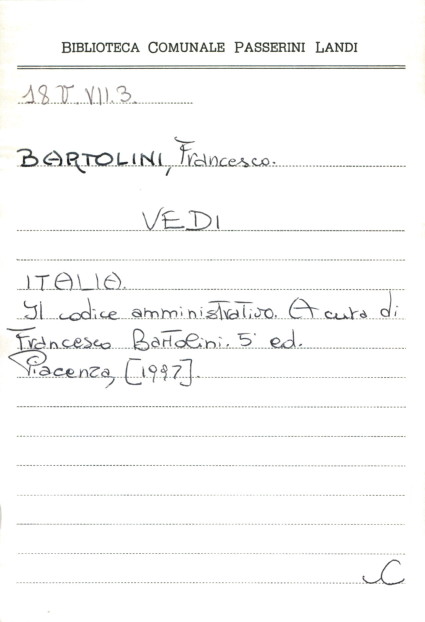 BIBLIOTECA COMUNALE PASSERINI LANDI
18 V. VII. 3.
BARTOLINI, Francesco.
VEDI
ITALIA.
Il codice amministrativo. A cura di
Francesco Bartolini. 5ª ed.
Piacenza, [1997].
C